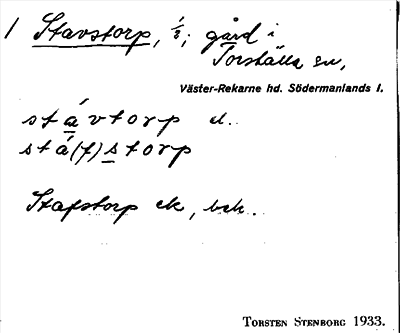 1 Stavstorp, ½; gård i
Torshälla sn,
Väster-Rekarne hd. Södermanlands l.
stávtorp el.
stá(f)storp
Stafstorp ek, bek.
TORSTEN STENBORG 1933.